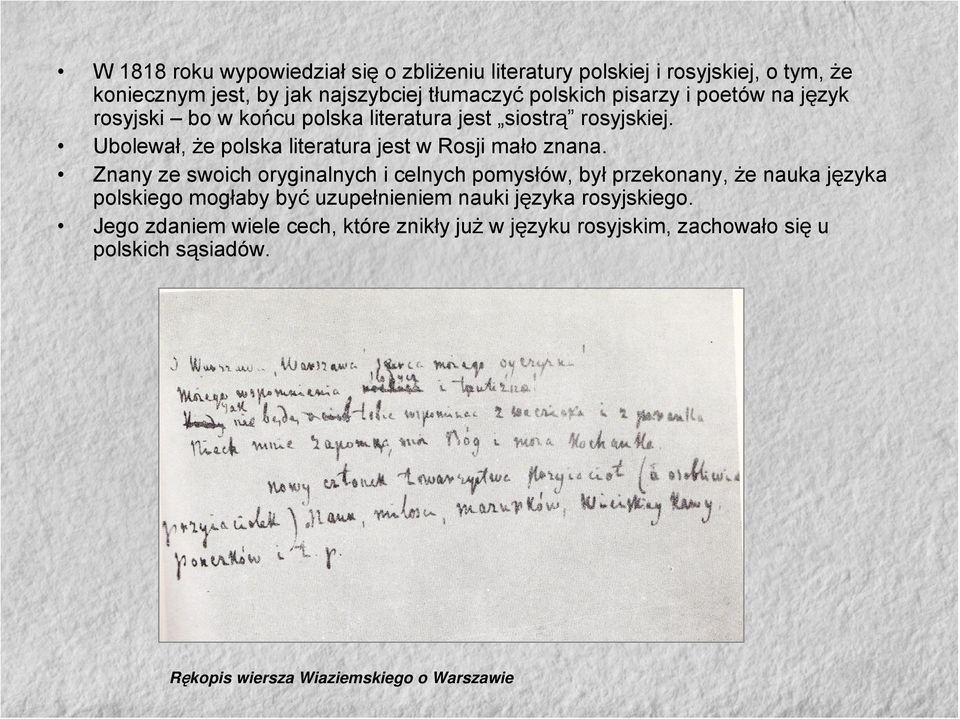 • W 1818 roku wypowiedział się o zbliżeniu literatury polskiej i rosyjskiej, o tym, że
koniecznym jest, by jak najszybciej tłumaczyć polskich pisarzy i poetów na język
rosyjski – bo w końcu polska literatura jest „siostrą” rosyjskiej.
• Ubolewał, że polska literatura jest w Rosji mało znana.
• Znany ze swoich oryginalnych i celnych pomysłów, był przekonany, że nauka języka
polskiego mogłaby być uzupełnieniem nauki języka rosyjskiego.
• Jego zdaniem wiele cech, które znikły już w języku rosyjskim, zachowało się u
polskich sąsiadów.
Warszawa! mojego
mojego wspomnienia i
jak nie będę tobie wspominac z i z
Niech mnie ma Bóg i moja Kochanka
nowy członek towarzystwa (a
przyiaciolek) Nauk, miłosci, mazurków, Wieiskiey Kawy,
ponczków i t. p.
Rękopis wiersza Wiaziemskiego o Warszawie